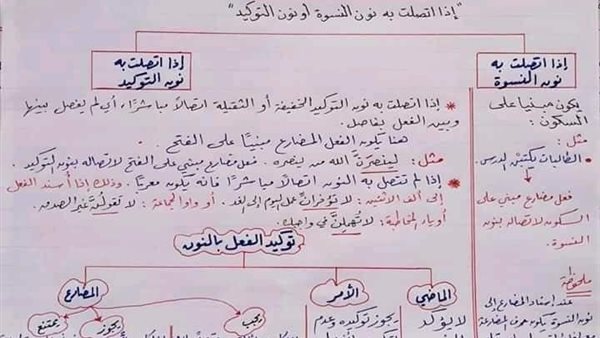 "إذا اتصلت به نون النسوة أو نون التوكيد"
إذا اتصلت به
نون النسوة
يكون مبنيا على
السكون:
مثل:
الطالبات يكتبن الدرس.
فعل مضارع مبني على
السكون لاتصاله بنون
النسوة.
ملحوظة
عند إسناد المضارع إلى
نون النسوة يكون حرف المضارعة
إذا اتصلت به
نون التوكيد
* إذا اتصلت به نون التوكيد الخفيفة أو الثقيلة اتصالاً مباشراً، أي لم يفصل بينها
وبين الفعل بفاصل.
هنا يكون الفعل المضارع مبنياً على الفتح
مثل: لينصرنّ الله من ينصره. فعل مضارع مبني على الفتح لاتصاله بنون التوكيد.
* إذا لم تتصل به النون اتصالاً مباشراً فانه يكون معرباً. وذلك إذا أسند الفعل
إلى ألف الاثنين: لا تؤخران عمل اليوم إلى الغد. أو واو الجماعة: لا تقولنّ غير الصدق.
أو ياء المخاطبة: لا تهملنّ في واجبك.
توكيد الفعل بالنون
الماضي
لا يؤكد
الأمر
يجوز توكيده وعدم
المضارع
يجب
يجوز
يمتنع